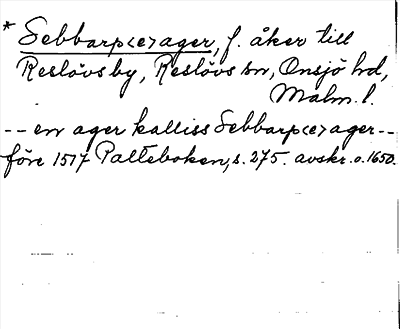 * Sebbarp<e>ager, f. åker till
Reslövs by, Reslövs sn, Onsjö hd,
Malm. l.
-- en ager kalliss Sebbarp<e>ager --
före 1517 Palteboken, s. 275. avskr. o. 1650.